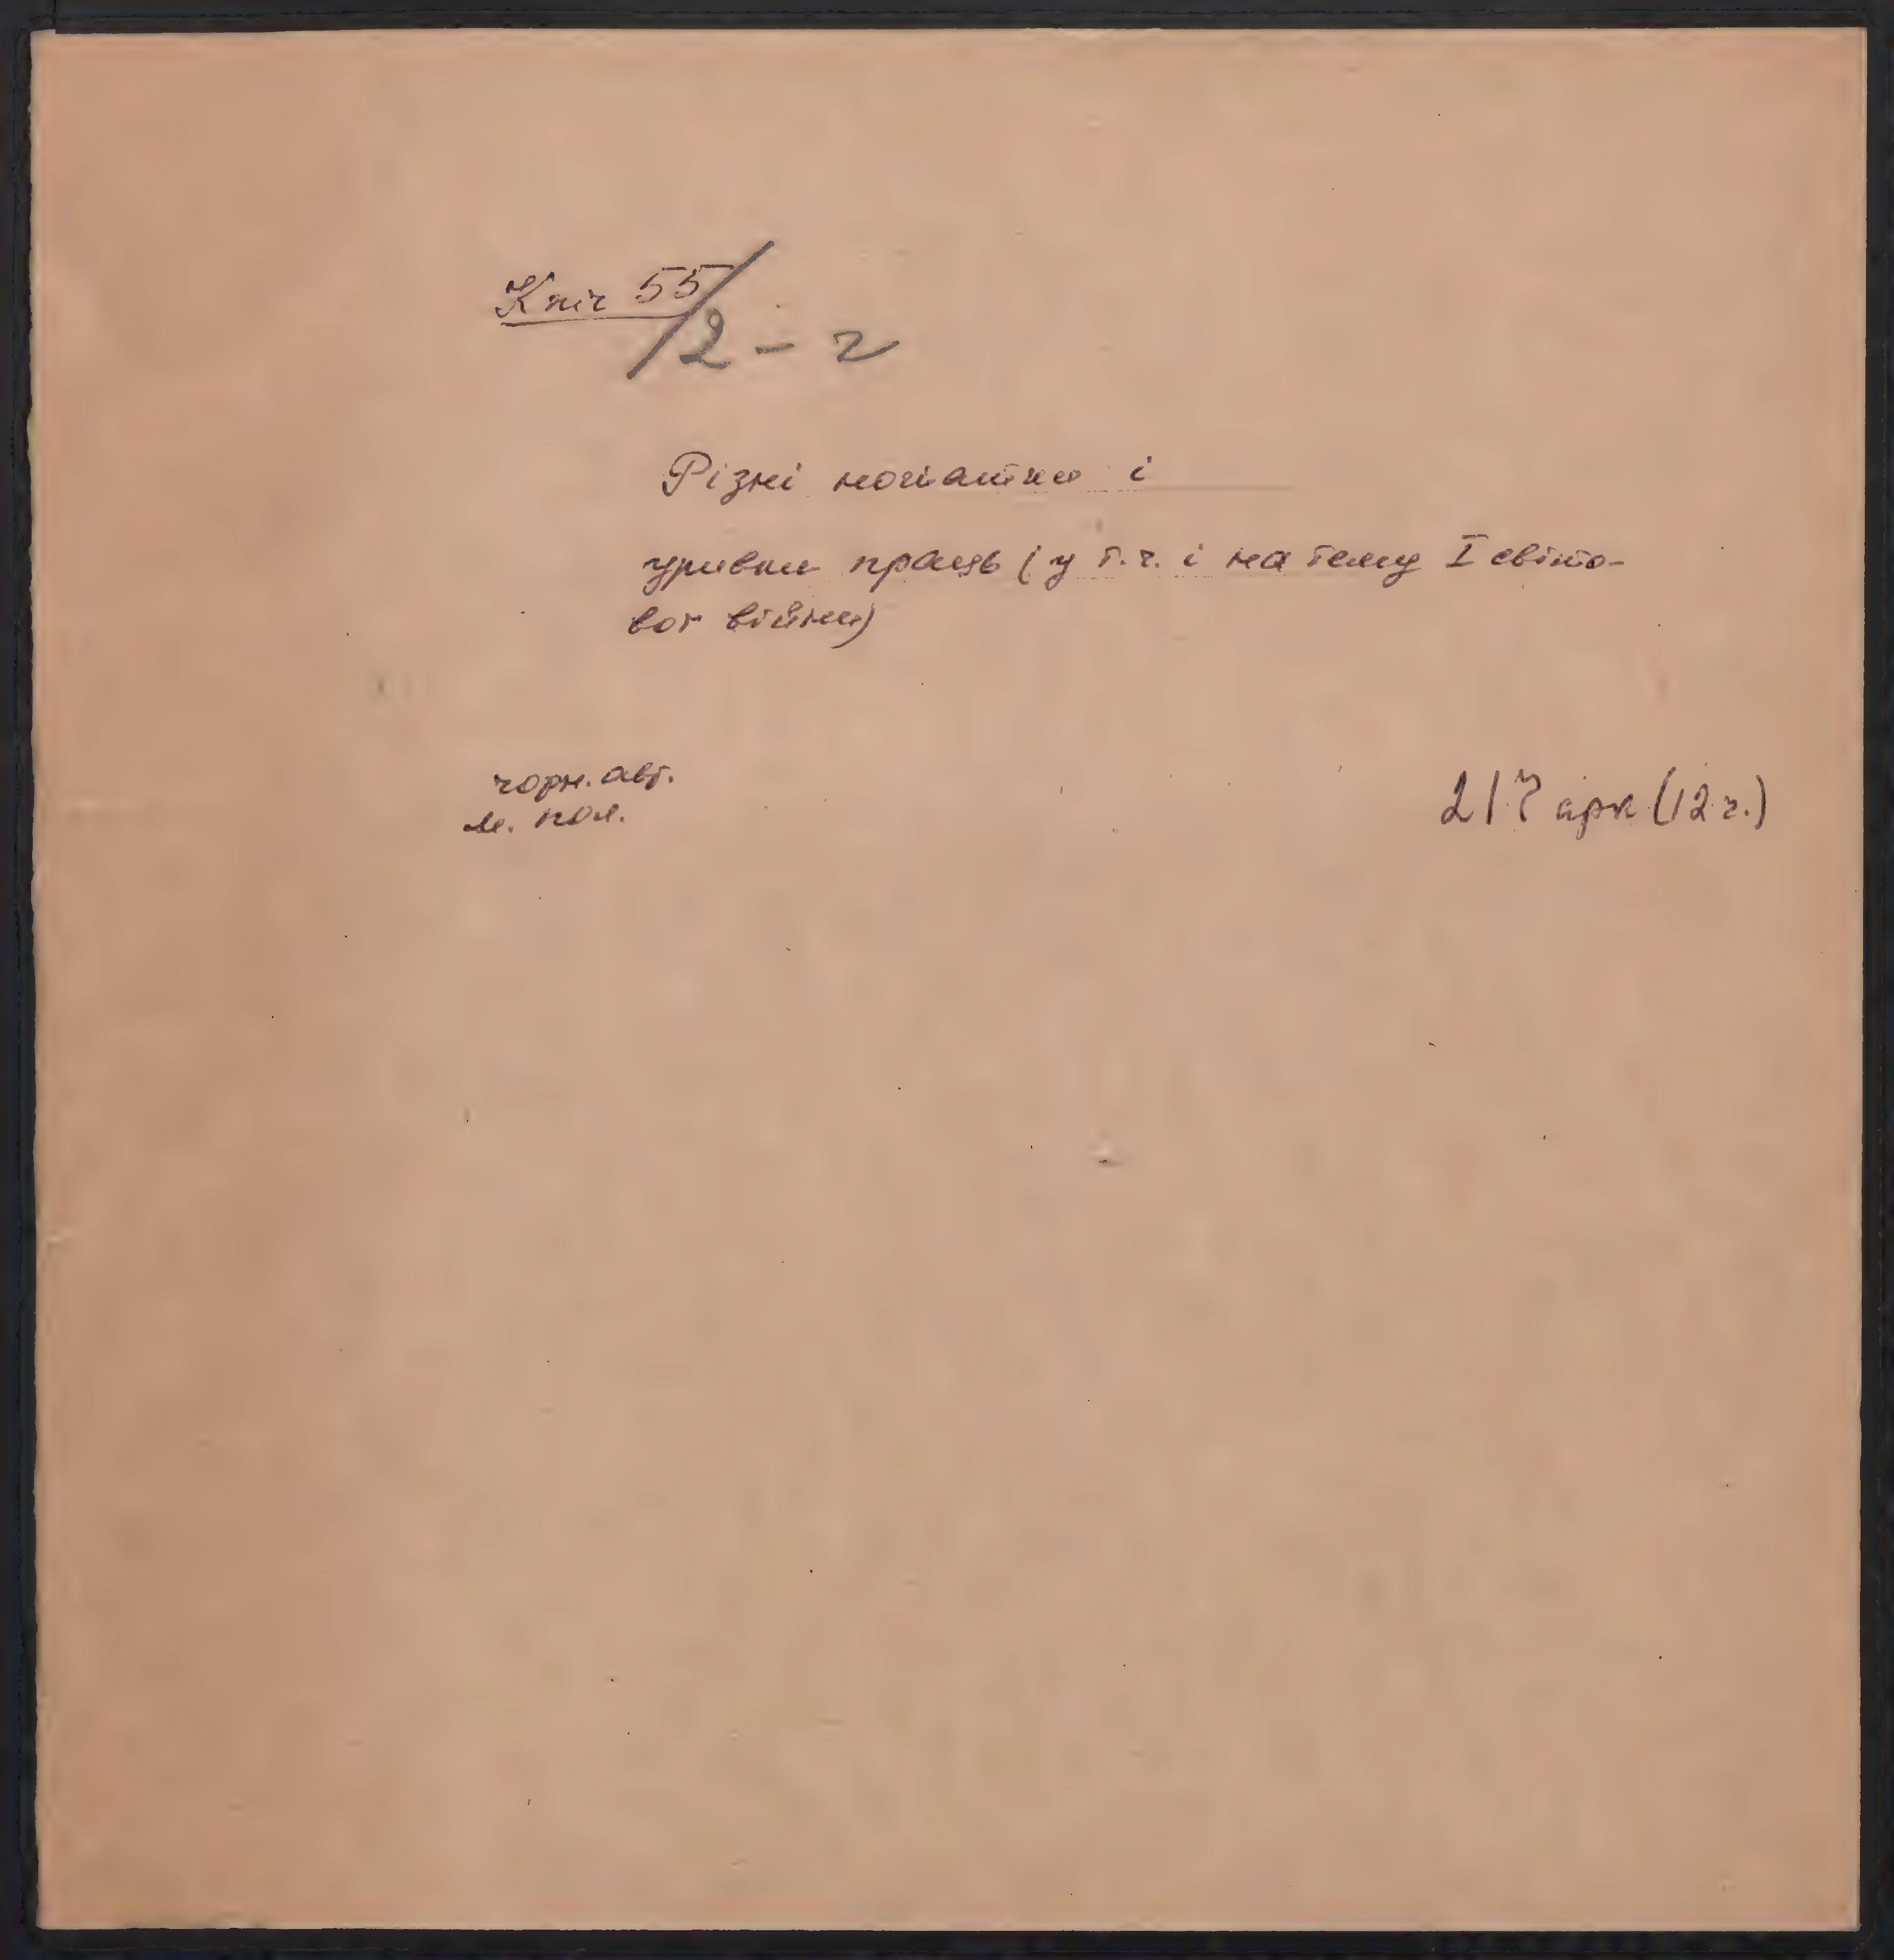 Кніг 55/2-г
Різні нотатки і
уривки праць (у т.ч. і на тему І світо-
вої війни)
чорн. авт.
м. пол.
217 арк (12 ч.)